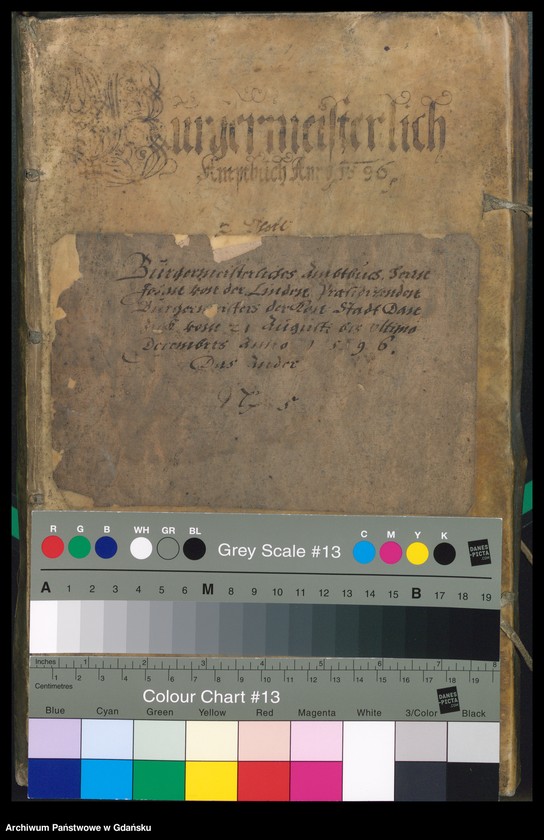 Burgermeisterlich
Amptbuch Anno 1596
2 Theil
Bürgermeisterliches Ambtbuch, herrn
Johan von der Linden, Præsidirenden
Bürgermeisters der Kön Stadt Dan
vom 21 Augusti bis ultimo
Decembris Anno 1596.
Das ander
5
R G B WH GR BL Grey Scale #13 C M Y K DANES-PICTA.COM
A 1 2 3 4 5 6 M 8 9 10 11 12 13 14 15 B 17 18 19
Inches 1 2 3 4 5 6 7 8
1 2 3 4 5 6 7 8 9 10 11 12 13 14 15 16 17 18 19
Centimetres
Colour Chart #13 DANES-PICTA.COM
Blue Cyan Green Yellow Red Magenta White 3/Color Black
Archiwum Państwowe w Gdańsku